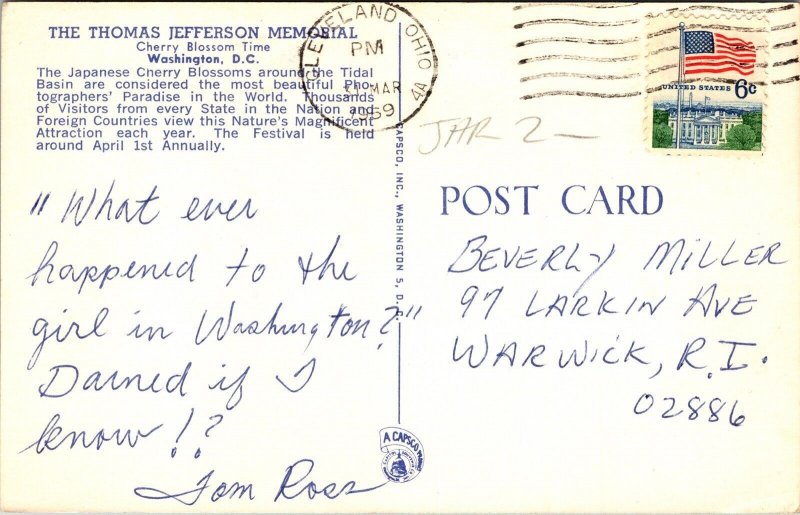 THE THOMAS JEFFERSON MEMORIAL
Cherry Blossom Time
Washington, D.C.
The Japanese Cherry Blossoms around the Tidal
Basin are considered the most beautiful Pho-
tographers' Paradise in the World. Thousands
of Visitors from every State in the Nation and
Foreign Countries view this Nature's Magnificent
Attraction each year. The Festival is held
around April 1st Annually.
"What ever
happened to the
girl in Washington?"
Darned if I
know!?
Tom Ross
CLEVELAND OHIO
PM
MAR
1969
4A
UNITED STATES 6c
JAR 2-
CAPSCO, INC., WASHINGTON 5, D.C.
POST CARD
BEVERLY MILLER
97 LARKIN AVE
WARWICK, R.I.
02886
A CAPSCO